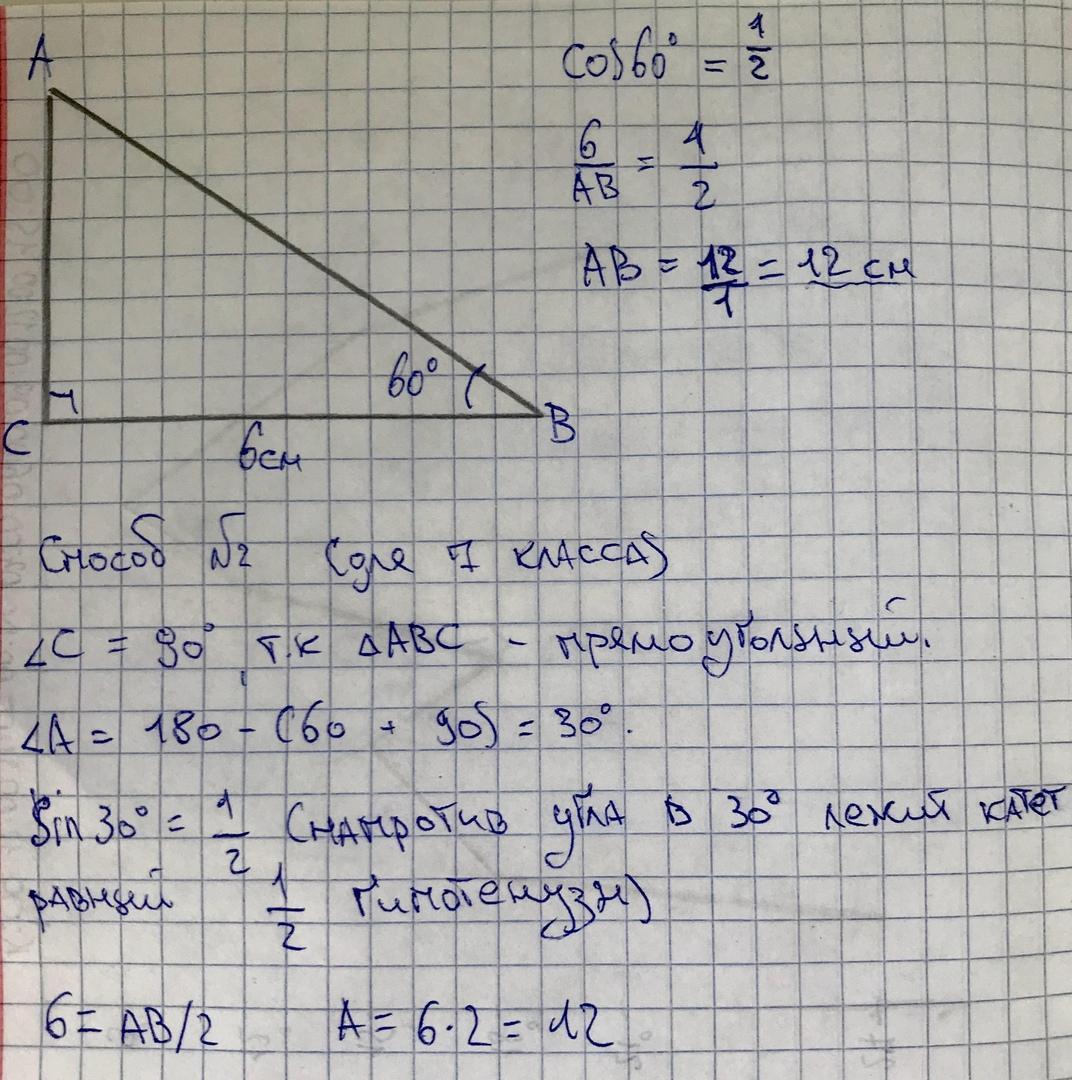 A
cos 60° = 1/2
6/AB = 1/2
AB = 12/1 = 12 см
60°
C
B
6см
Способ №2 (для 7 класса)
∠C = 90°, т.к ΔABC - прямоугольный.
∠A = 180 - (60 + 90) = 30°.
Sin 30° = 1/2 (напротив угла в 30° лежий катет
равный 1/2 гипотенузы)
6 = AB/2 A = 6·2 = 12